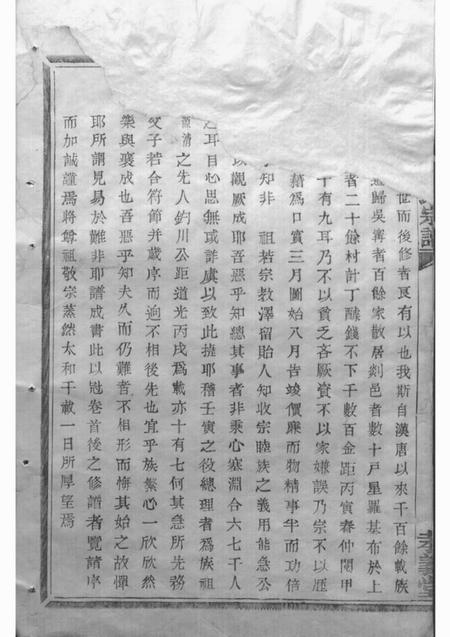 世而後修者良有以也我斯自漢唐以來千百餘載族
歸吳寗者百餘家散居剡邑者數十戶星羅基布於上
省二十餘村計丁醵錢不下千數百金距丙寅春仲閱甲
十有九耳乃不以貧乏吝厥資不以家嫌誤乃宗不以歷
藉為口實三月圖始八月告竣價廉而物精事半而功倍
知非 祖若宗教澤留貽人知收宗睦族之義用能急公
以觀厥成耶吾惡乎知總其事者非秉心塞淵合六七千人
之耳目心思無或詐虞以致此哉耶稽壬寅之役總理者為族祖
清之先人鈞川公距道光丙戌為載亦十有七何其急所先務
父子若合符節并歲序而逈不相後先也宜乎族繫心一欣欣然
樂與襄成也吾惡乎知夫久而仍難者不相形而悔其始之故憚
耶所謂見易於難非耶譜成書此以冠卷首後之修譜者覽諸序
而加誠謹焉將尊祖敬宗蒸然太和千載一日所厚望焉
宗譜
孝義堂